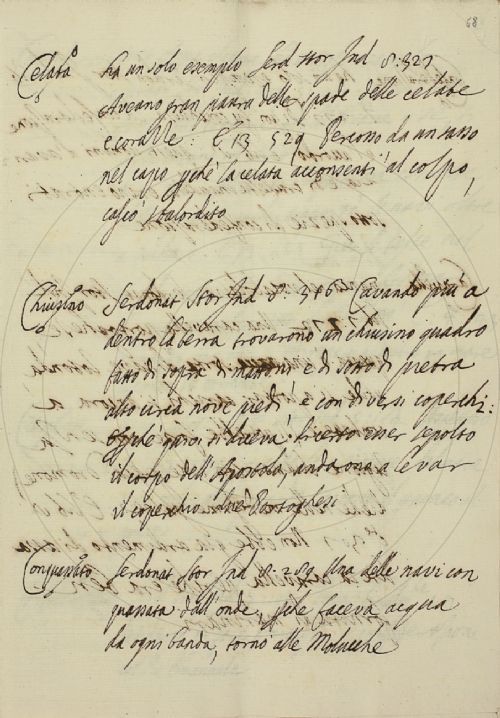 68
Celata ha un solo esempio Serd Stor Ind 8: 327
Aveano gran paura delle spade delle celate
e corazze: E 13 529 Percosso da un sasso
nel capo pchè la celata acconsentì al colpo,
cascò sbalordito
Chiusino Serdonat Stor Ind 8: 346 Cavando più a
dentro la terra trovarono un chiusino quadro
fatto di sopra di mattoni e di sotto di pietra
alto circa nove piedi, e con diversi coperchi:
di certo esser sepolto
il corpo dell'Apostolo, andarono a levar
il coperchio Portoghesi
Conquassato Serdonat Stor Ind 8: 289 Una delle navi con
quassata dall'onde, pchè faceva acqua
da ogni banda, tornò alle Molucche